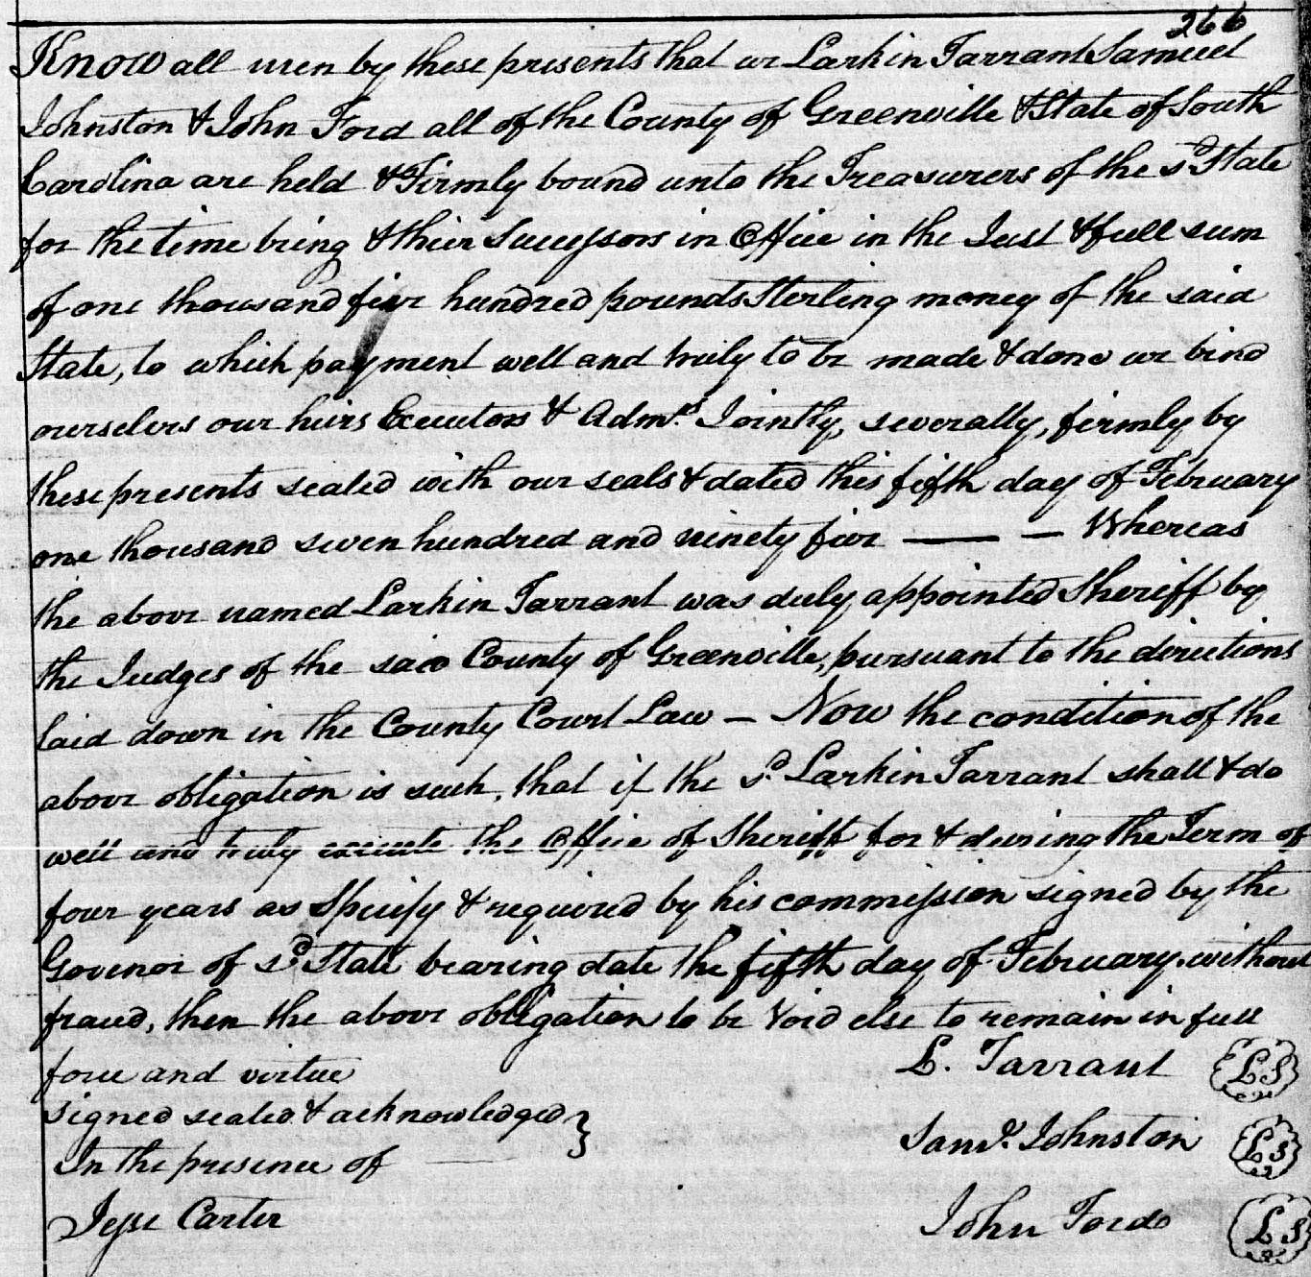 266
Know all men by these presents that we Larkin Tarrant Samuel
Johnston & John Ford all of the County of Greenville & State of South
Carolina are held & Firmly bound unto the Treasurers of the sd State
for the time being & their Successors in Office in the Just & full sum
of one thousand five hundred pounds Sterling money of the said
State, to which payment well and truly to be made & done we bind
ourselves our heirs Executors & Admrs. Jointly, severally, firmly by
these presents sealed with our seals & dated this fifth day of February
one thousand seven hundred and ninety five — — Whereas
the above named Larkin Tarrant was duly appointed Sheriff by
the Judges of the said County of Greenville, pursuant to the directions
laid down in the County Court Law — Now the condition of the
above obligation is such, that if the sd. Larkin Tarrant shall & do
well and truly execute the Office of Sheriff for & during the Term of
four years as Specify & required by his commission signed by the
Govenor of sd. State bearing date the fifth day of February without
fraud, then the above obligation to be Void else to remain in full
force and virtue
L. Tarrant LS
Signed sealed & acknowledged }
In the presence of
Saml. Johnston LS
Jesse Carter
John Ford LS